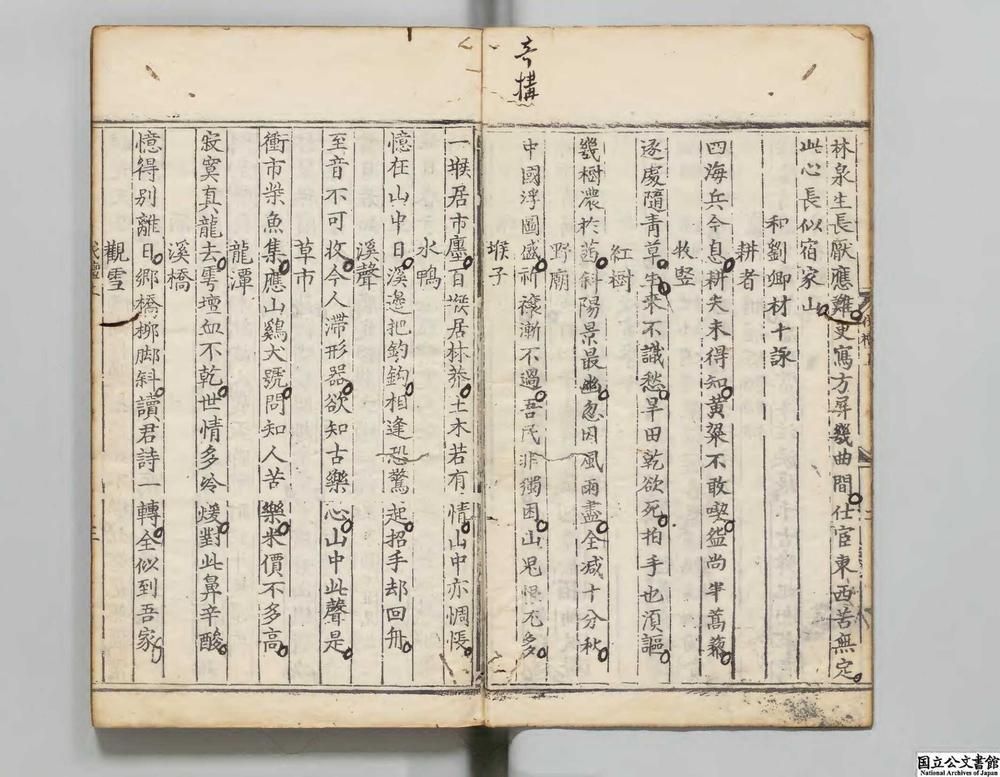 林泉生長厭應難更寫方屏幾曲間仕宦東西苦無定
此心長似宿家山
和劉卿材十詠
耕者
四海兵今息耕夫未得知黃粱不敢喫盤尚半蒿藜
牧豎
逐處隨青草牛來不識愁旱田乾欲死拍手也須謳
紅樹
幾樹濃於茜斜陽景最幽忽因風雨盡全减十分秋
野廟
中國浮圖盛祈禳漸不過吾民非獨困山鬼恨尤多
堠子
一堠居市廛百堠居林莽土木若有情山中亦惆悵
水鴨
憶在山中日溪邊把釣鈎相逢恐驚起招手却回舟
溪聲
至音不可收今人滯形器欲知古樂心山中此聲是
草市
衝市柴魚集應山鷄犬號問知人苦樂米價不多高
龍潭
寂寞真龍去雩壇血不乾世情多冷煖對此鼻辛酸
溪橋
憶得别離日鄉橋柳脚斜讀君詩一轉全似到吾家
觀雪
国立公文書館
National Archives of Japan